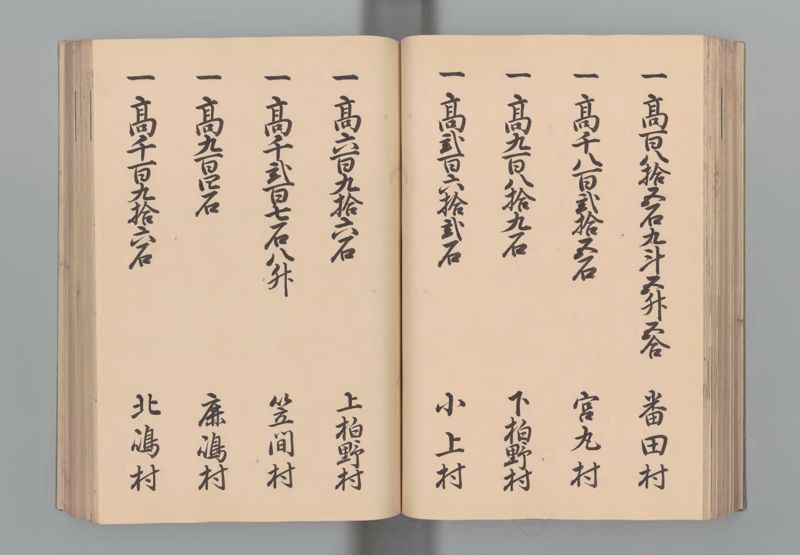 一 高百八拾五石九斗五升五合 番田村
一 高千八百弐拾五石 宮丸村
一 高九百八拾九石 下柏野村
一 高弐百六拾弐石 小上村
一 高六百九拾六石 上柏野村
一 高千弐百七石八升 笠間村
一 高九百四石 廉嶋村
一 高千百九拾六石 北嶋村